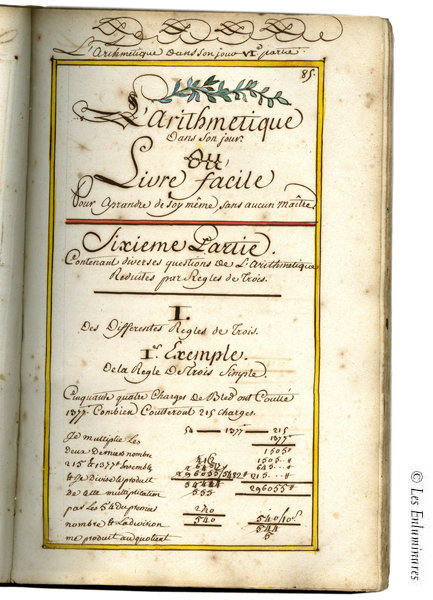 L'Arithmetique dans son jour VIe partie.
85.
L'Arithmetique
Dans son jour.
OU
Livre facile
Pour Aprandre de soy même sans aucun Maître.
Sixieme Partie.
Contenant diverses questions De L'Arithmetique
Reduites par Regles de Trois.
I.
Des Differentes Regles de Trois.
Ir. Exemple.
De la Regle De Trois Simple.
Cinquante quatre Charges de Bled ont Coutté
1377 Combien Coutteront 215 charges.
54 — 1377 — 215
Je multiplie Les
1377
deux derniers nombre
1505
215 & 1377 Ensemble
1505
645
& Je divise le produit
215
de cette multiplication
296055
par Les 54 du premier
540
nombre & La division
540
me produit au quotient
© Les Enluminures